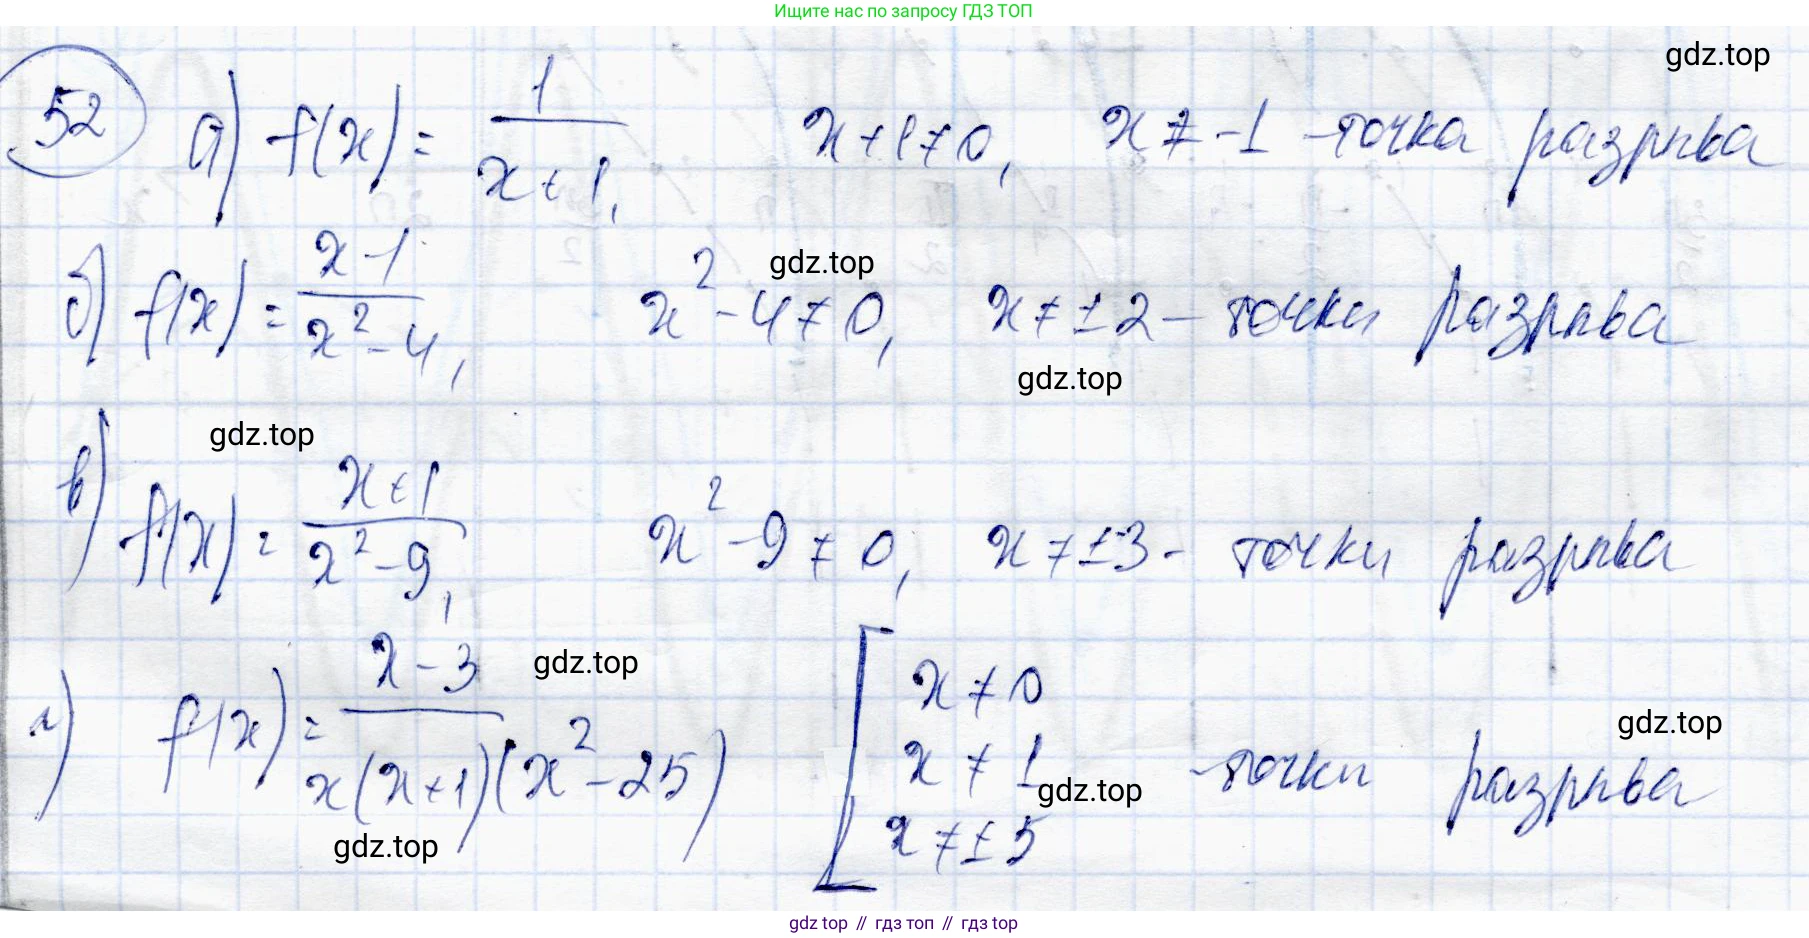 Ищите нас по запросу ГДЗ ТОП
gdz.top
52 а) f(x) = 1/(x+1), x+1≠0, x≠-1 - точка разрыва
б) f(x) = (x-1)/(x²-4), x²-4≠0, x≠±2 - точки разрыва
gdz.top
gdz.top
gdz.top
в) f(x) = (x+1)/(x²-9), x²-9≠0, x≠±3 - точки разрыва
г) f(x) = (x-3)/(x(x+1)(x²-25)) [ x≠0
x≠1 - точки разрыва
x≠±5
gdz.top
gdz.top
gdz.top
gdz.top
gdz top // гдз топ // gdz top